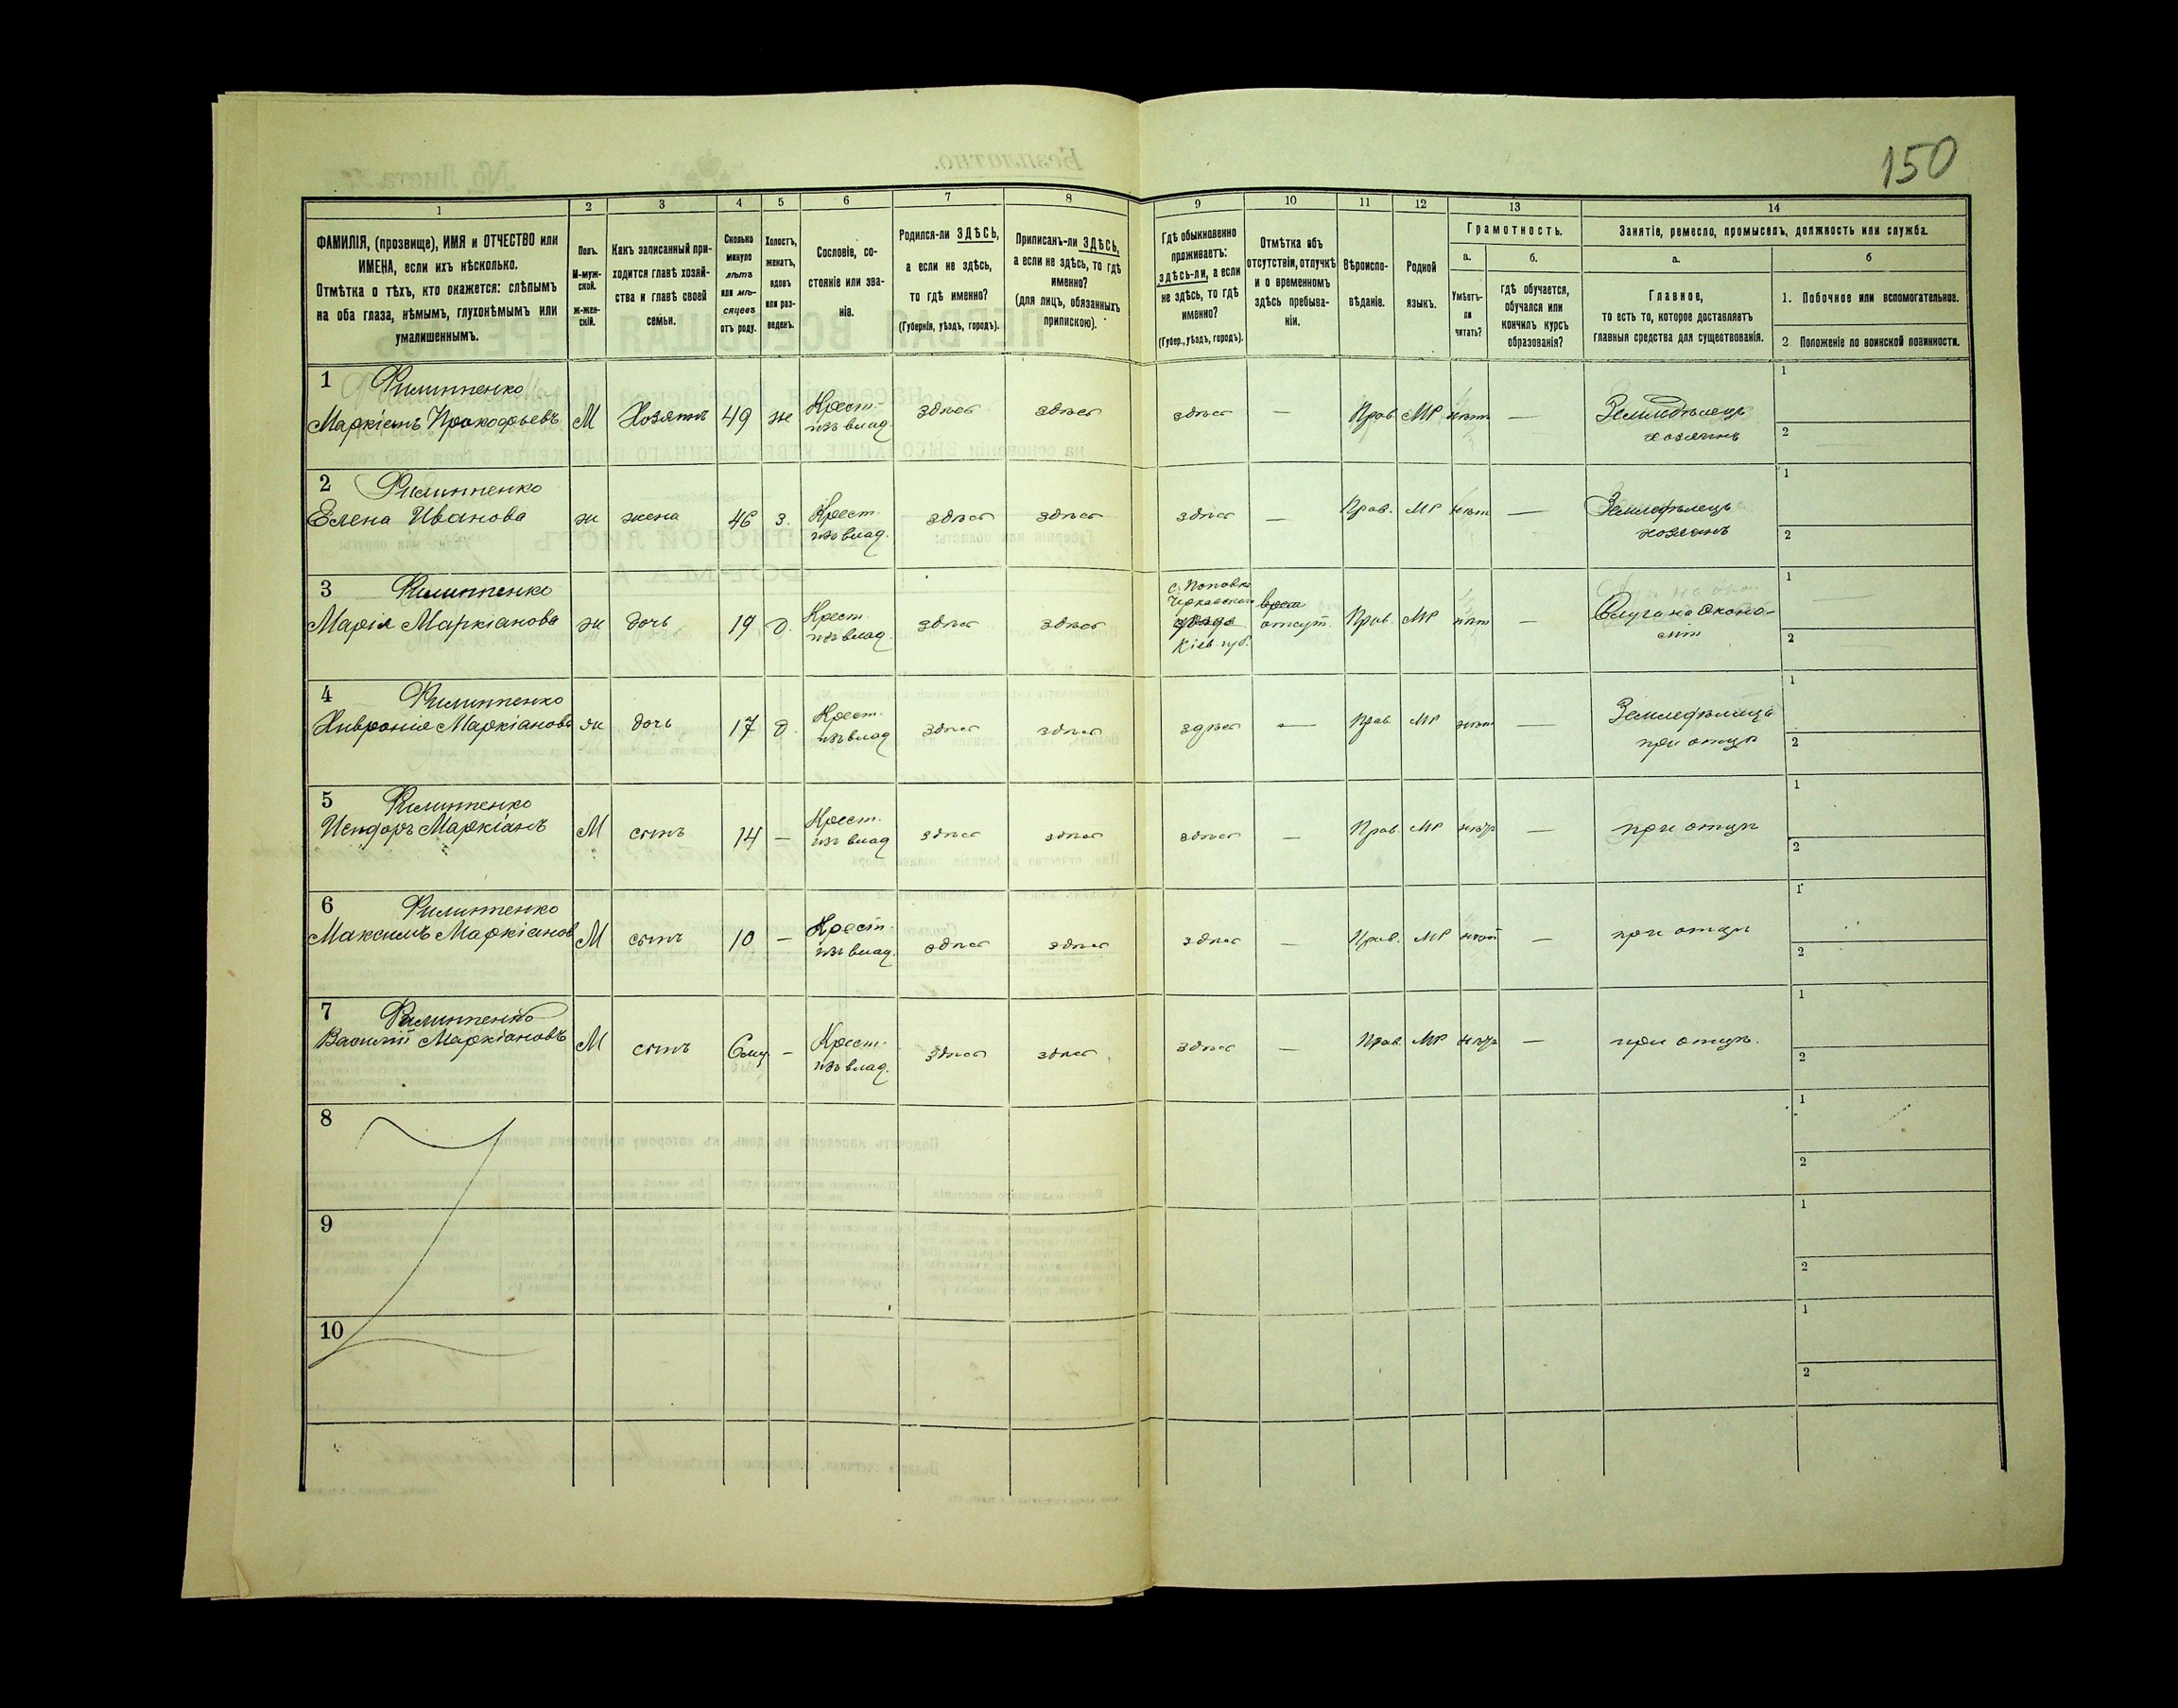 150
1 2 3 4 5 6 7 8 9 10 11 12 13 14
ФАМИЛІЯ, (прозвище), ИМЯ и ОТЧЕСТВО или
ИМЕНА, если ихъ нѣсколько.
Отмѣтка о тѣхъ, кто окажется: слѣпымъ
на оба глаза, нѣмымъ, глухонѣмымъ или
умалишеннымъ.
Полъ.
М-муж-
ской.
ж-жен-
скій.
Какъ записанный при-
ходится главѣ хозяй-
ства и главѣ своей
семьи.
Сколько
минуло
лѣтъ
или мѣ-
сяцевъ
отъ роду.
Холостъ,
женатъ,
вдовъ
или раз-
веденъ.
Сословіе, со-
стояніе или зва-
ніе.
Родился-ли ЗДѢСЬ,
а если не здѣсь,
то гдѣ именно?
(Губернія, уѣздъ, городъ).
Приписанъ-ли ЗДѢСЬ,
а если не здѣсь, то гдѣ
именно?
(для лицъ, обязанныхъ
припискою).
Гдѣ обыкновенно
проживаетъ:
здѣсь-ли, а если
не здѣсь, то гдѣ
именно?
(Губер., уѣздъ, городъ).
Отмѣтка объ
отсутствіи, отлучкѣ
и о временномъ
здѣсь пребыва-
ніи.
Вѣроиспо-
вѣданіе.
Родной
языкъ.
Грамотность.
а.
Умѣетъ-
ли
читать?
б.
гдѣ обучается,
обучался или
кончилъ курсъ
образованія?
Занятіе, ремесло, промыселъ, должность или служба.
а.
Главное,
то есть то, которое доставляетъ
главныя средства для существованія.
б
1. Побочное или вспомогательное.
2 Положеніе по воинской повинности.
1 Филиппенко
Маркіанъ Прокофьевъ М Хозяинъ 49 же Крест. изъ влад. здѣсь здѣсь здѣсь — Прав МР нѣтъ — Земледѣлецъ хозяинъ 1 2
2 Филиппенко
Елена Иванова ж жена 46 з. Крест. изъ влад. здѣсь здѣсь здѣсь — Прав. МР нѣтъ — Земледѣлецъ хозяинъ 1 2
3 Филиппенко
Марія Маркіанова ж дочь 19 д. Крест. изъ влад. здѣсь здѣсь с. Поповка Черкасскаго уѣзда Кіев. губ. отсут. Прав. МР нѣтъ Слуга на эконо-
міи 1 2
4 Филиппенко
Хивронія Маркіанова ж дочь 17 д. Крест. изъ влад здѣсь здѣсь здѣсь — Прав. МР нѣтъ — Земледѣлица при отцѣ 1 2
5 Филиппенко
Исидоръ Маркіанъ М сынъ 14 — Крест. изъ влад здѣсь здѣсь здѣсь — Прав. МР нѣтъ — при отцѣ 1 2
6 Филиппенко
Максимъ Маркіанов М сынъ 10 — Крест. изъ влад. здѣсь здѣсь здѣсь — Прав. МР нѣтъ — при отцѣ 1 2
7 Филиппенко
Василій Маркіановъ М сынъ — Крест. изъ влад. здѣсь здѣсь здѣсь — Прав. МР нѣтъ — при отцѣ. 1 2
8 1 2
9 1 2
10 1 2